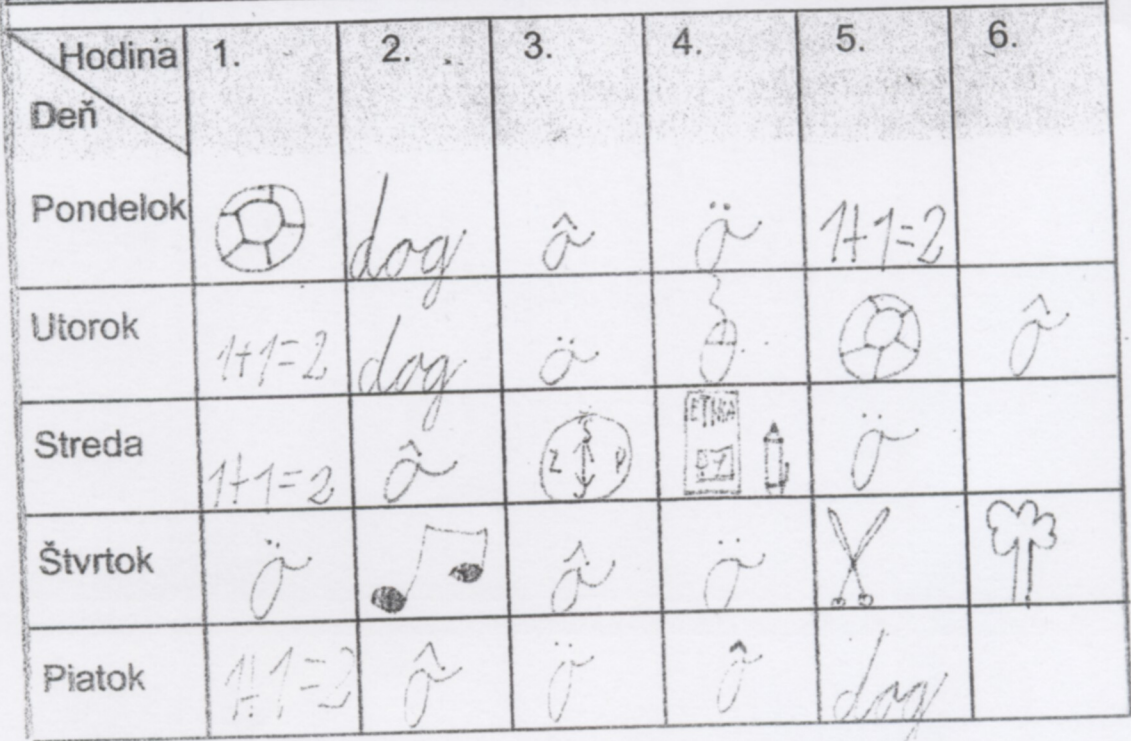 Hodina 1. 2. 3. 4. 5. 6.
Deň
Pondelok dog ô ö 1+1=2
Utorok 1+1=2 dog ö ô
Streda 1+1=2 ô S Z P ETIKA ö
Štvrtok ö ô ö
Piatok 1+1=2 ô ö ô dog